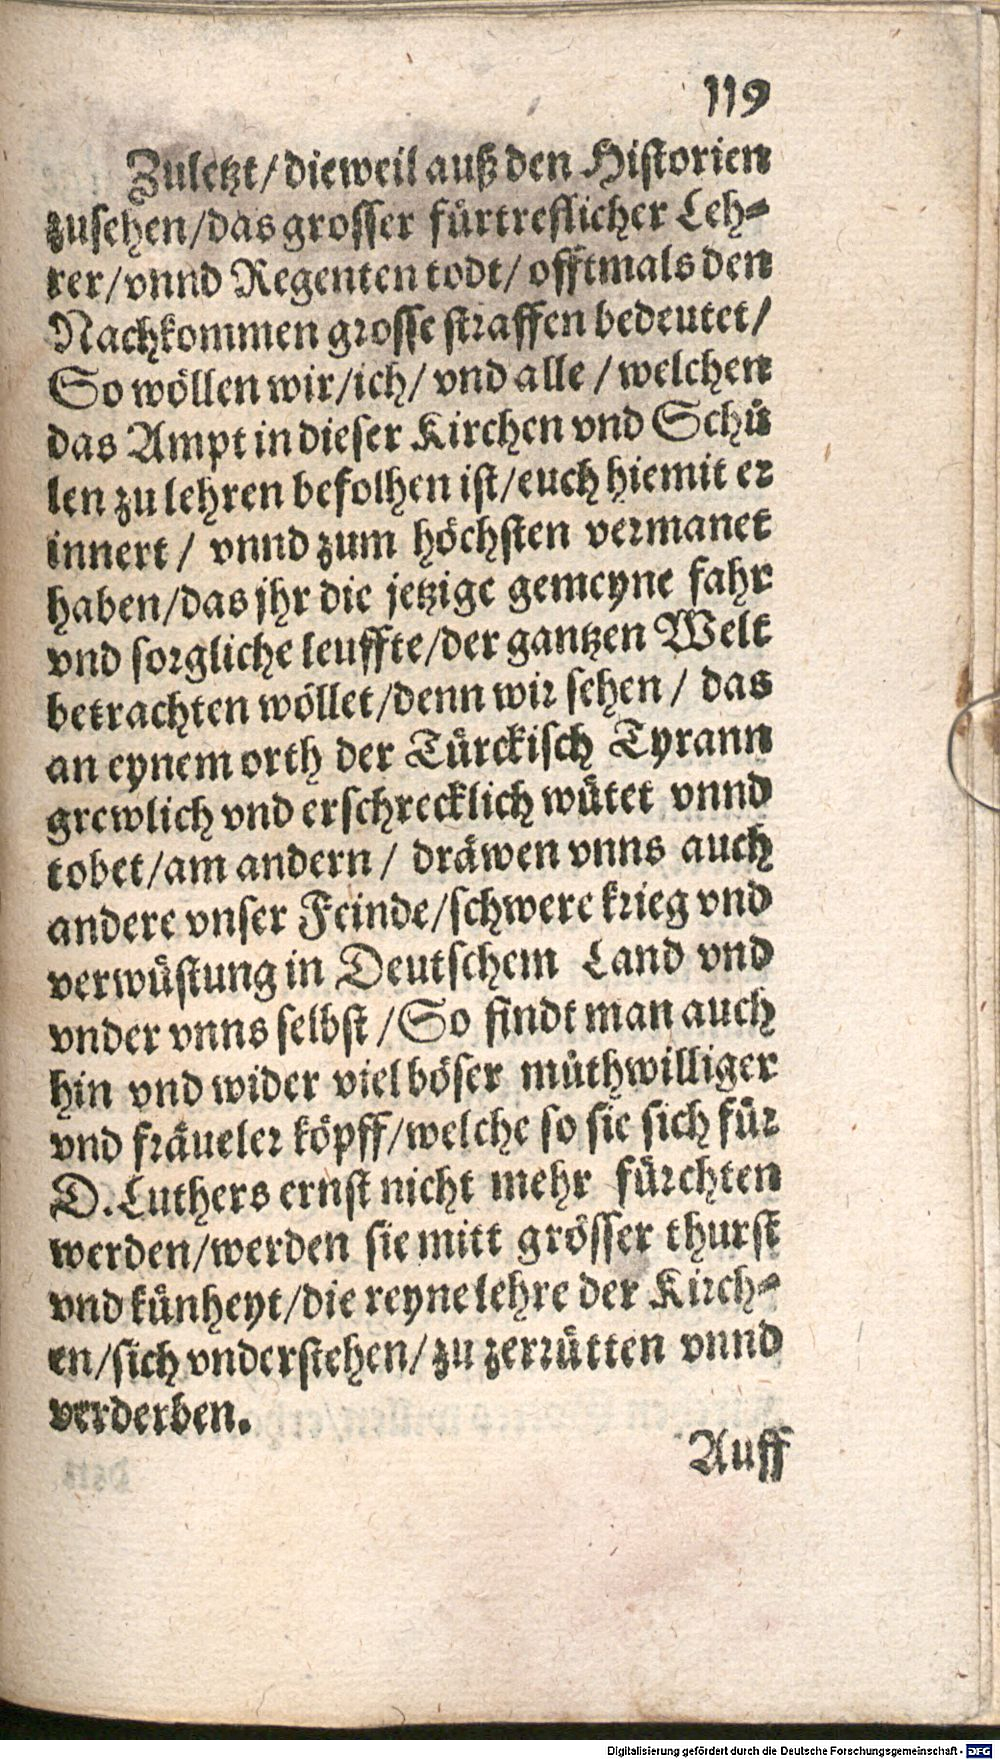 119
Zuletzt/dieweil auß den Historien
zusehen/das grosser fürtreflicher Leh-
rer/vnnd Regenten todt/ offtmals den
Nachkommen grosse straffen bedeutet/
So wöllen wir/ich/ vnd alle / welchen
das Ampt in dieser Kirchen vnd Schů
len zu lehren befolhen ist/euch hiemit er
innert / vnnd zum höchsten vermanet
haben/das jhr die jetzige gemeyne fahr
vnd sorgliche leuffte/der gantzen Welt
betrachten wöllet/denn wir sehen / das
an eynem orth der Türckisch Tyrann
grewlich vnd erschrecklich wütet vnnd
tobet/am andern / dräwen vnns auch
andere vnser Feinde/schwere krieg vnd
verwüstung in Deutschem Land vnd
vnder vnns selbst /So findt man auch
hin vnd wider viel böser můthwilliger
vnd fräueler köpff/welche so sie sich für
D.Luthers ernst nicht mehr fürchten
werden/werden sie mitt grösser thurst
vnd künheyt/die reyne lehre der Kirch-
en/sich vnderstehen/zu zerrütten vnnd
verderben.
Auff
Digitalisierung gefördert durch die Deutsche Forschungsgemeinschaft - DFG